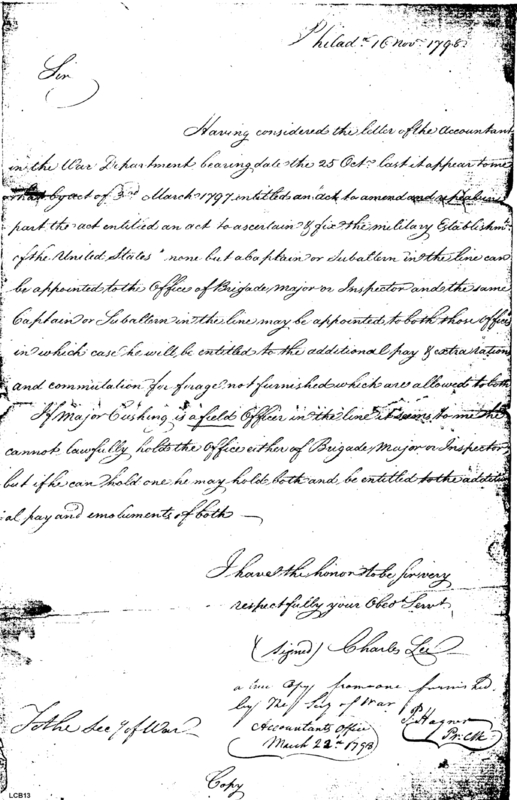 Philad.ª 16 Nov. 1798.
Sir
Having considered the letter of the Accountant
in the War Department bearing date the 25 Oct. last it appear to me
by act of 3rd March 1797 entitled an act to amend and repeal in
part the act entitled an act to ascertain & fix the military Establishmt.
of the United States" none but a Captain or Subaltern in the line can
be appointed to the Office of Brigade Major or Inspector and the same
Captain or Subaltern in the line may be appointed to both those Offices
in which case he will be entitled to the additional pay & extra rations
and commutation for forage not furnished which are allowed to both
If Major Cushing is a field Officer in the line it seems to me he
cannot lawfully hold the Office either of Brigade Major or Inspector
but if he can hold one he may hold both and be entitled to the addition
al pay and emoluments of both —
I have the honor to be sir very
respectfully your Obedt. Servt.
(signed) Charles Lee
a true Copy from one furnished
by The Secy of War
P. Hagner
Pr. Clk
Accountants Office
March 22d 1798
To the Secy of War
Copy
LCB13